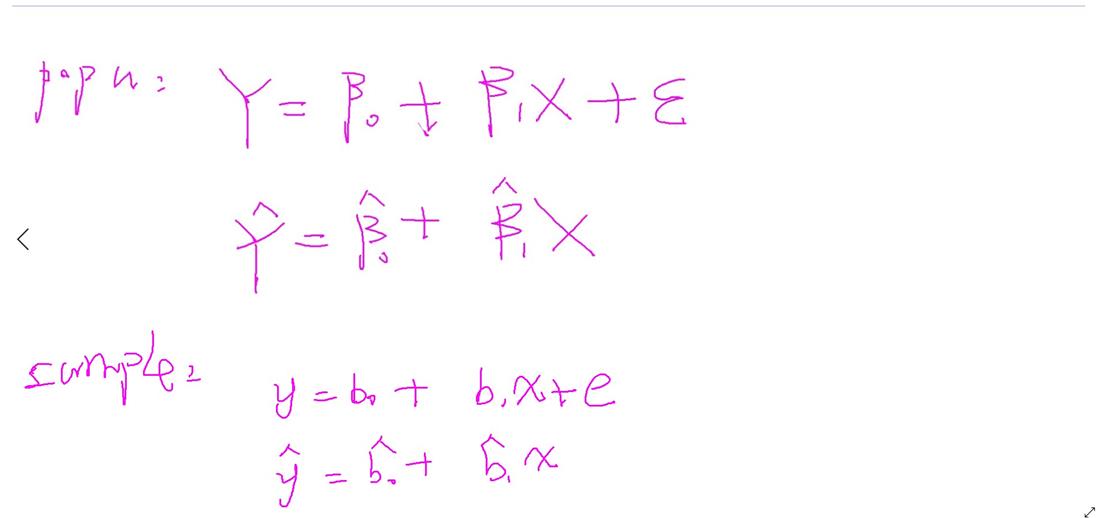 popn: Y = β₀ + β₁X + ε
Ŷ = β̂₀ + β̂₁X
sample: y = b₀ + b₁x + e
ŷ = b̂₀ + b̂₁x